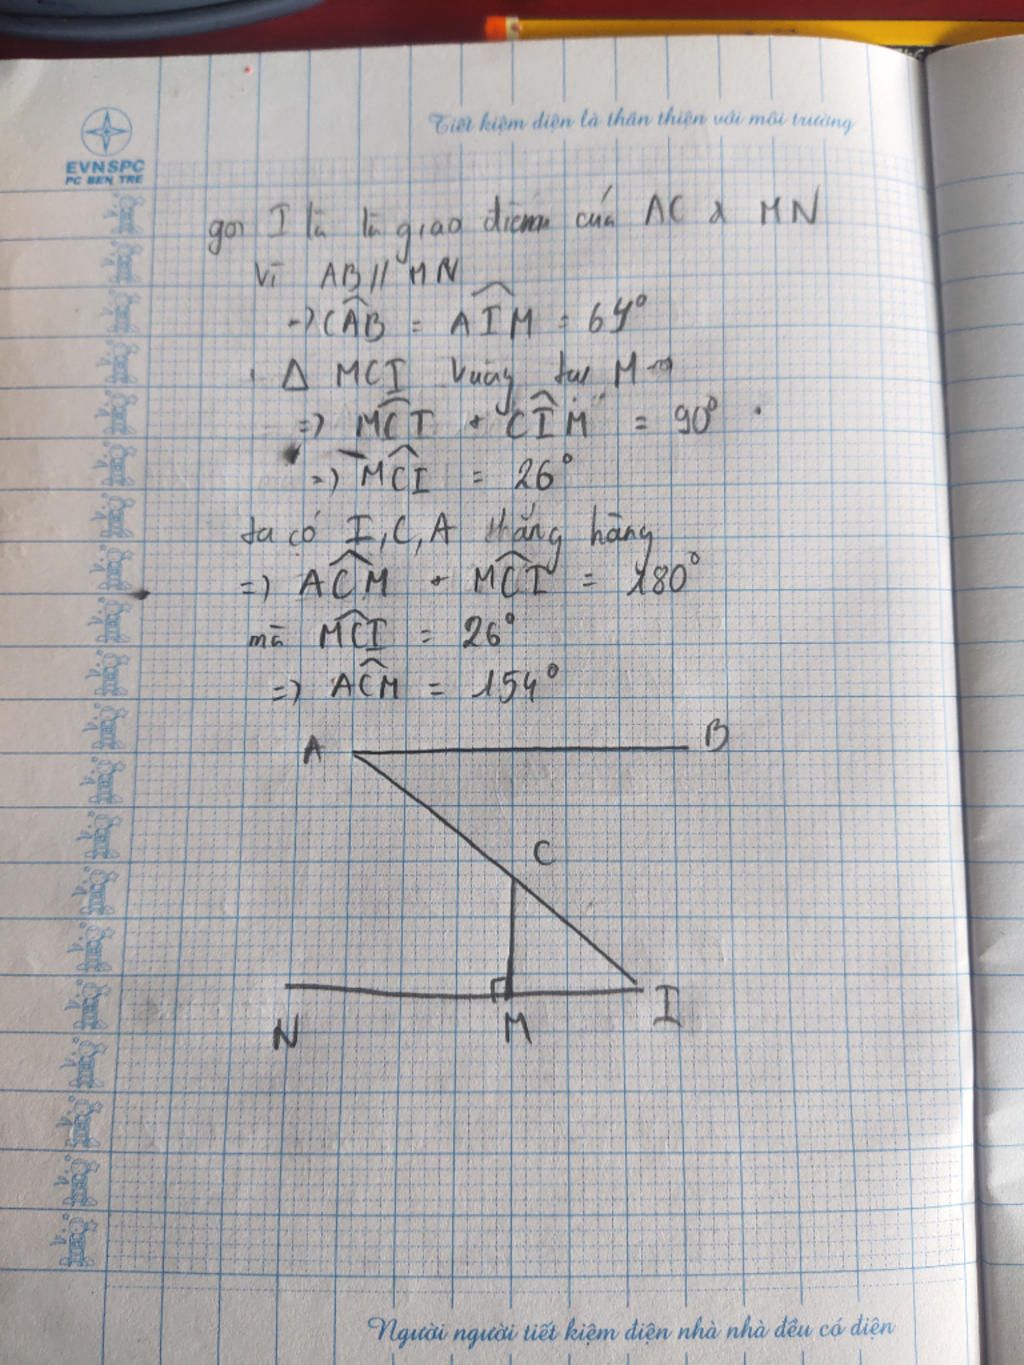 Tiết kiệm điện là thân thiện với môi trường
EVNSPC
PC BEN TRE
gọi I là là giao điểm của AC & MN
Vì AB // MN
-> CÂB = AÎM = 64°
Δ MCI vuông tại M
=> MĈI + CÎM = 90°
=> MĈI = 26°
ta có I, C, A thẳng hàng
=> AĈM + MĈI = 180°
mà MĈI = 26°
=> AĈM = 154°
A B
C
N M I
Người người tiết kiệm điện nhà nhà đều có điện